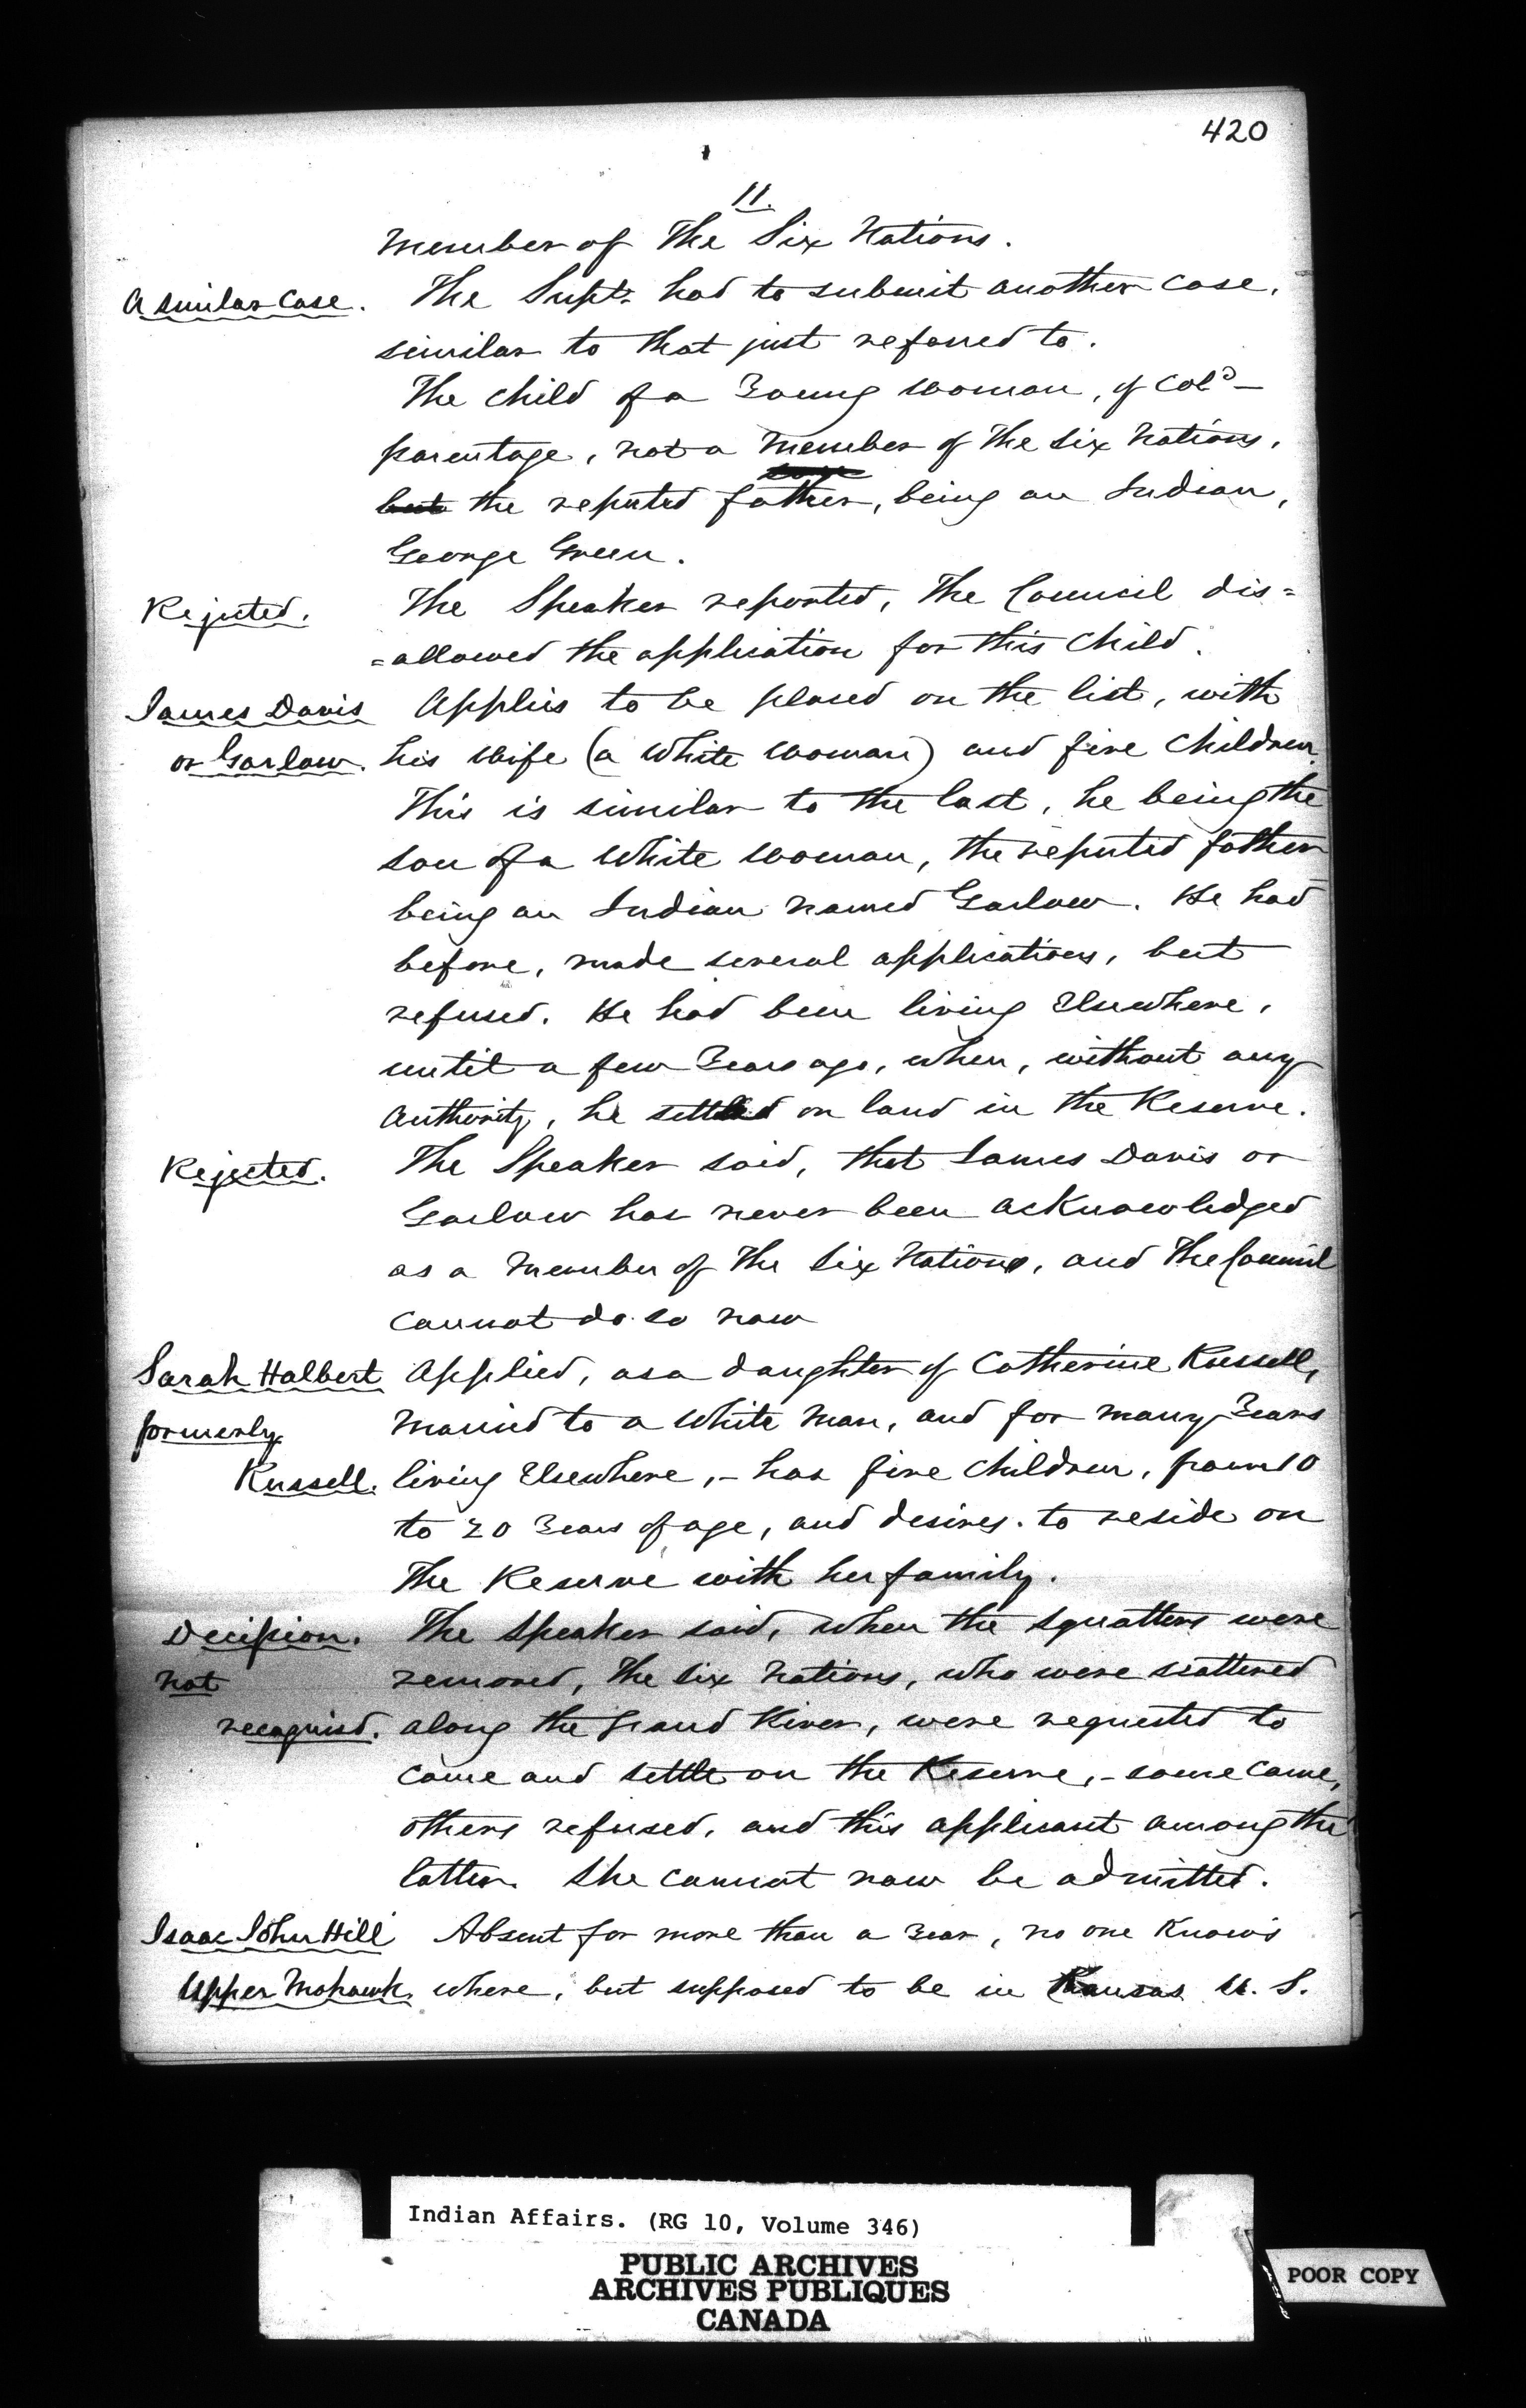 420
11.
member of The Six Nations.
A similar Case. The Supt. had to submit another case,
similar to that just referred to.
The child of a Young woman, of Cold
parentage, not a member of The Six Nations,
but the reputed father, being an Indian,
George Green.
Rejected. The Speaker reported, The Council dis=
=allowed the application for this Child.
James Davis Applies to be placed on the list, with
or Garlow. his Wife (a White Woman) and five Children.
This is similar to the last, he being the
son of a White Woman, the reputed father
being an Indian named Garlow. He had
before, made several applications, but
refused. He had been living Elsewhere,
until a few Years ago, when, without any
Authority, he settled on land in the Reserve.
Rejected. The Speaker said, that James Davis or
Garlow has never been acknowledged
as a Member of The Six Nations, and The Council
cannot do so now
Sarah Halbert Applied, as a daughter of Catherine Russell,
formerly married to a White Man, and for many Years
Russell. living Elsewhere, - has five Children, from 10
to 20 Years of age, and desires to reside on
The Reserve with her family.
Decision. The Speaker said, when the Squatters were
not removed, The Six Nations, who were scattered
recognised. along the Grand River, were requested to
come and settle on the Reserve, - some came,
others refused, and this applicant among the
latter. She cannot now be admitted.
Isaac John Hill Absent for more than a Year, no one Knows
Upper Mohawk. where, but supposed to be in Kansas U. S.
Indian Affairs. (RG 10, Volume 346)
PUBLIC ARCHIVES
ARCHIVES PUBLIQUES
CANADA
POOR COPY